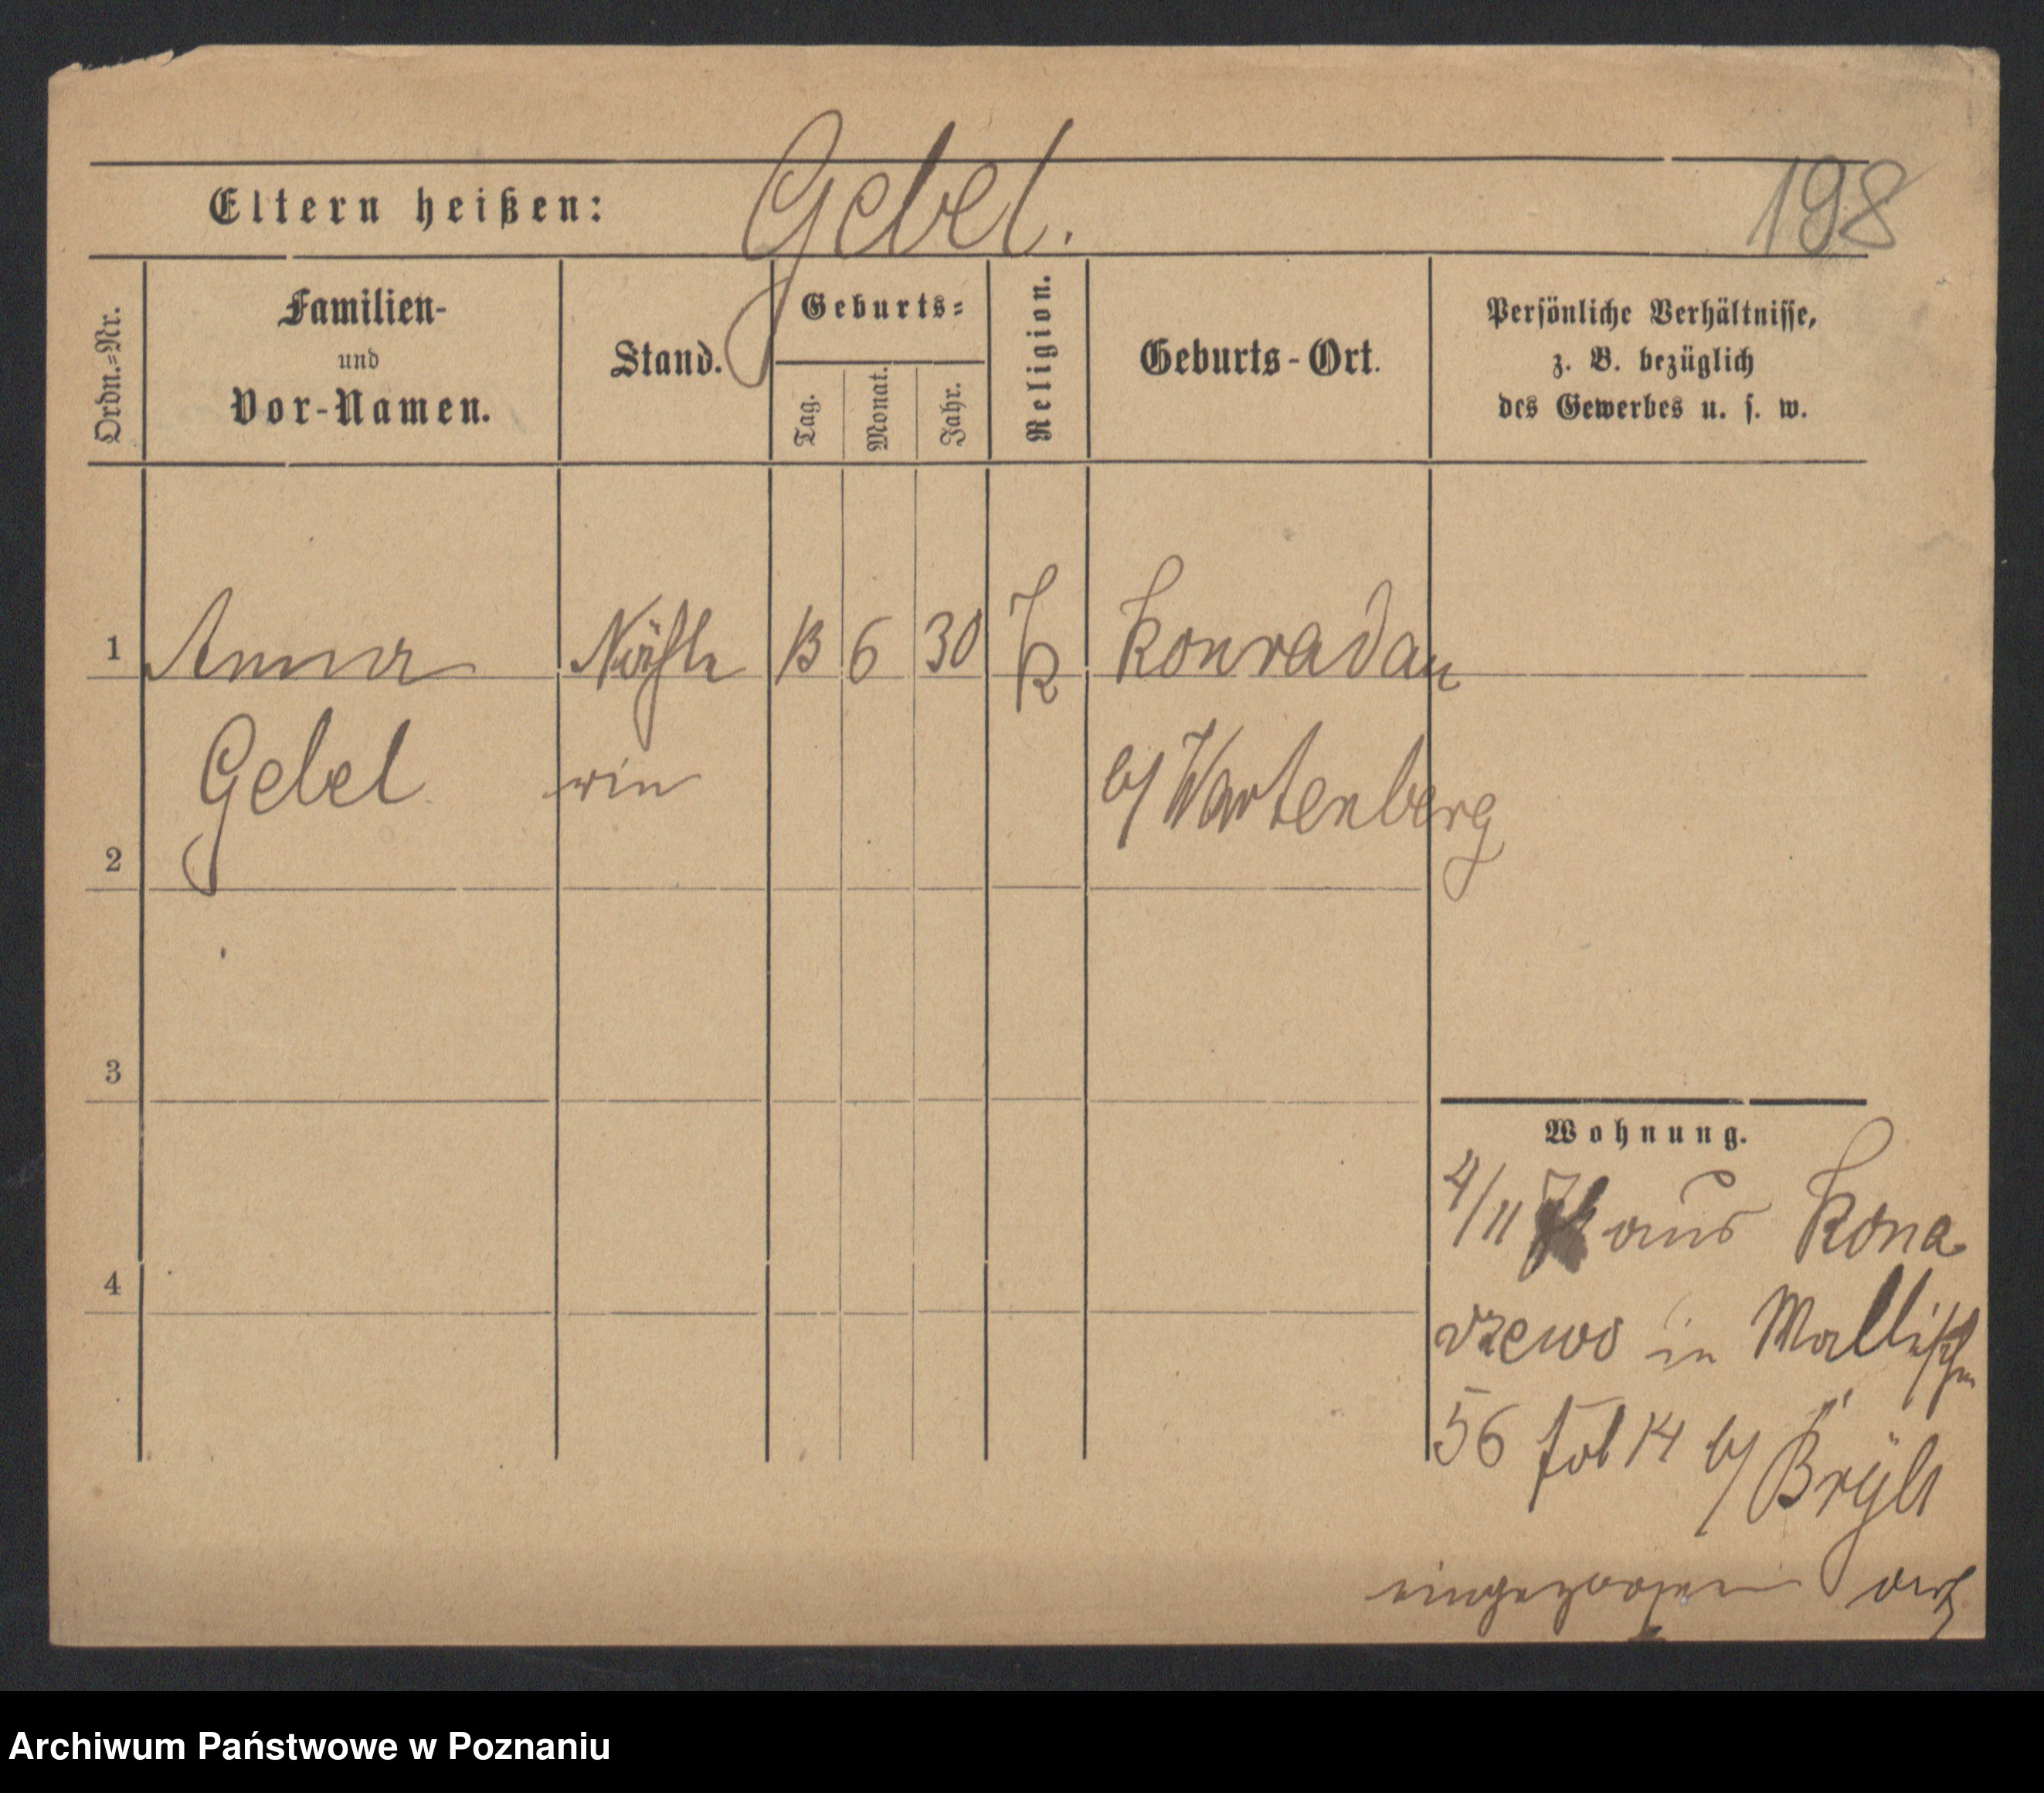 Gebel.
198
Eltern heißen:
Ordn.=Nr.
Familien-
und
Vor-Namen.
Stand.
Geburts=
Tag.
Monat.
Jahr.
Religion.
Geburts-Ort.
Persönliche Verhältnisse,
z. B. bezüglich
des Gewerbes u. s. w.
1 Anna 6 30 k Konradau
Gebel rin b/ Wartenberg
2
3
4
Wohnung.
4/11 aus Kona
rzewo in
56 14 b/
eingezogen
Archiwum Państwowe w Poznaniu